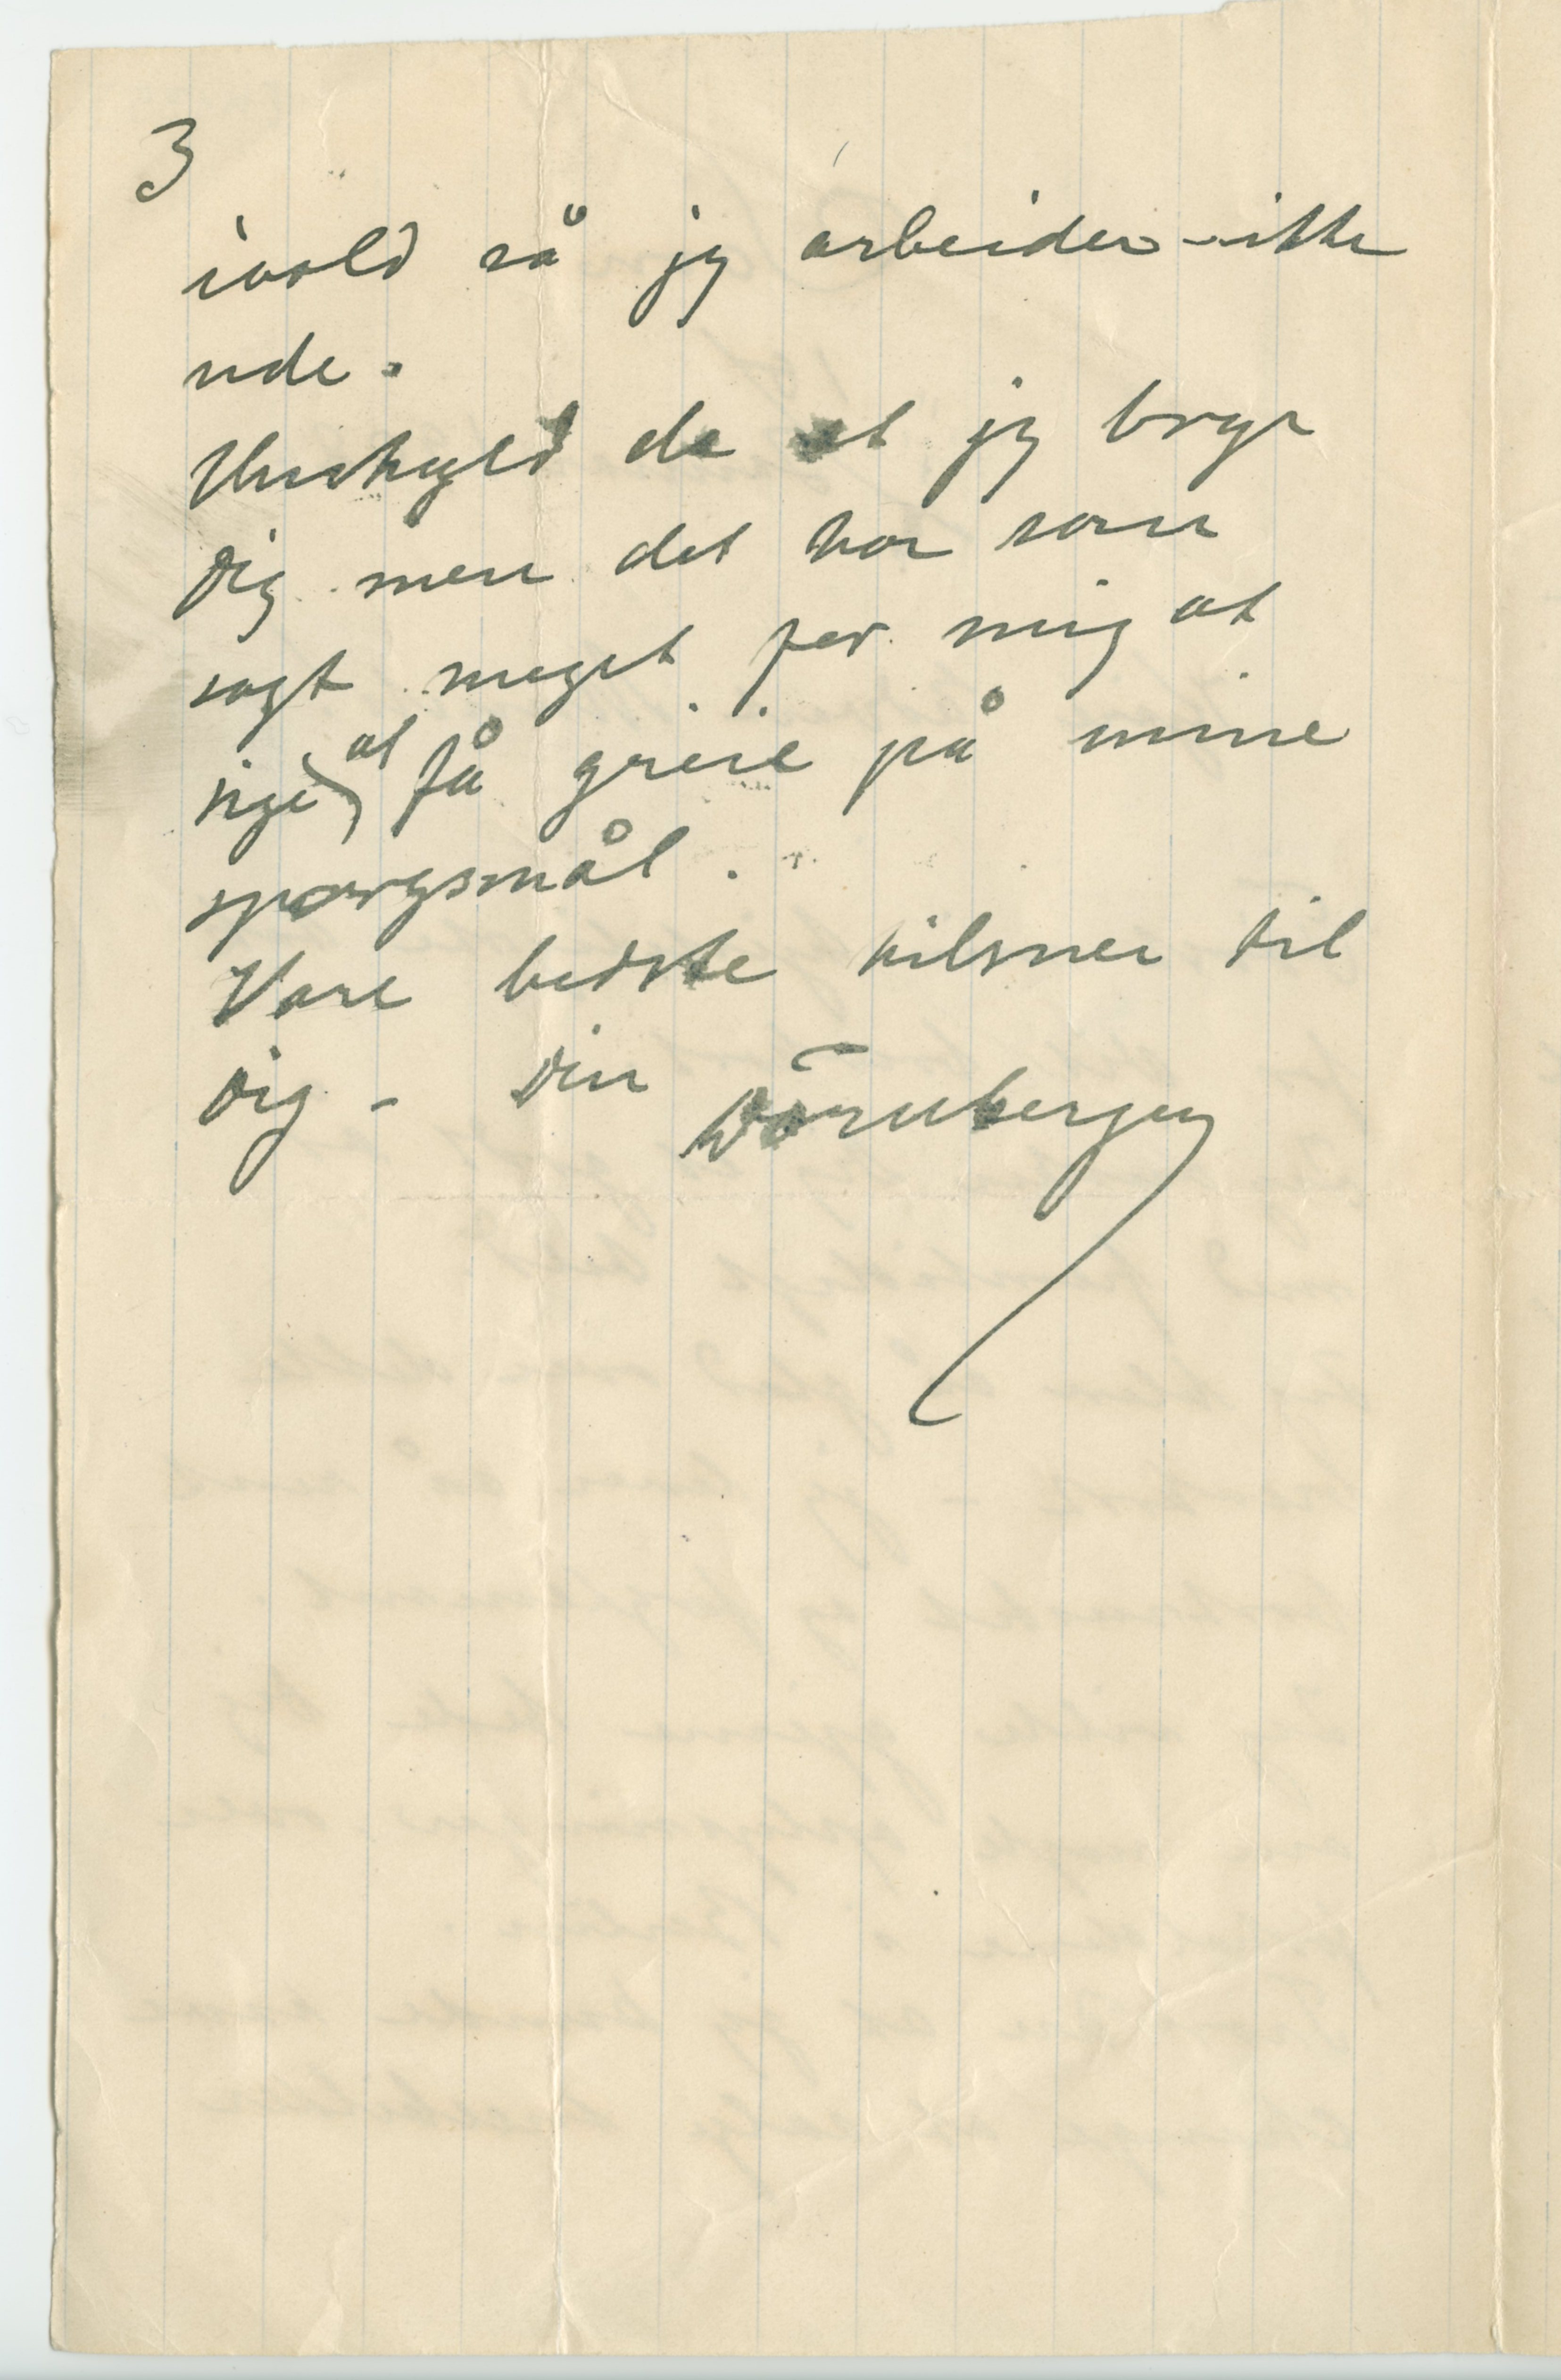 3
ivold så jeg arbeider ikke
ude.
Undskyld da at jeg bryr
Dig men det har som
sagt meget for mig at
sige at få greie på mine
spørgsmål.
Vare bedste hilsner til
Dig - Din